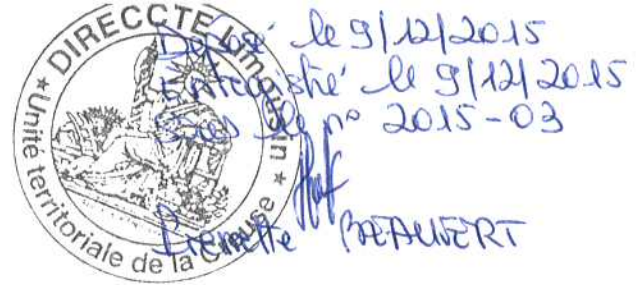 DIRECCTE Limousin
* Unité territoriale de la Creuse *
Déposé le 9/12/2015
enregistré le 9/12/2015
sous le n° 2015-03
Pierrette